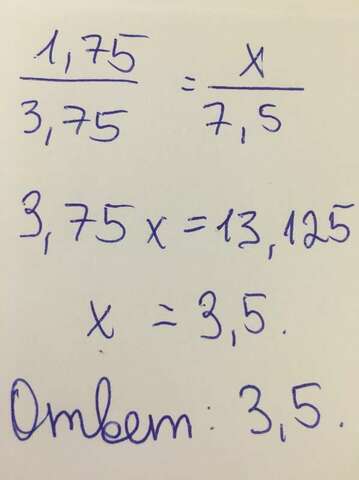 1,75/3,75 = x/7,5
3,75 x = 13,125
x = 3,5.
Ответ: 3,5.